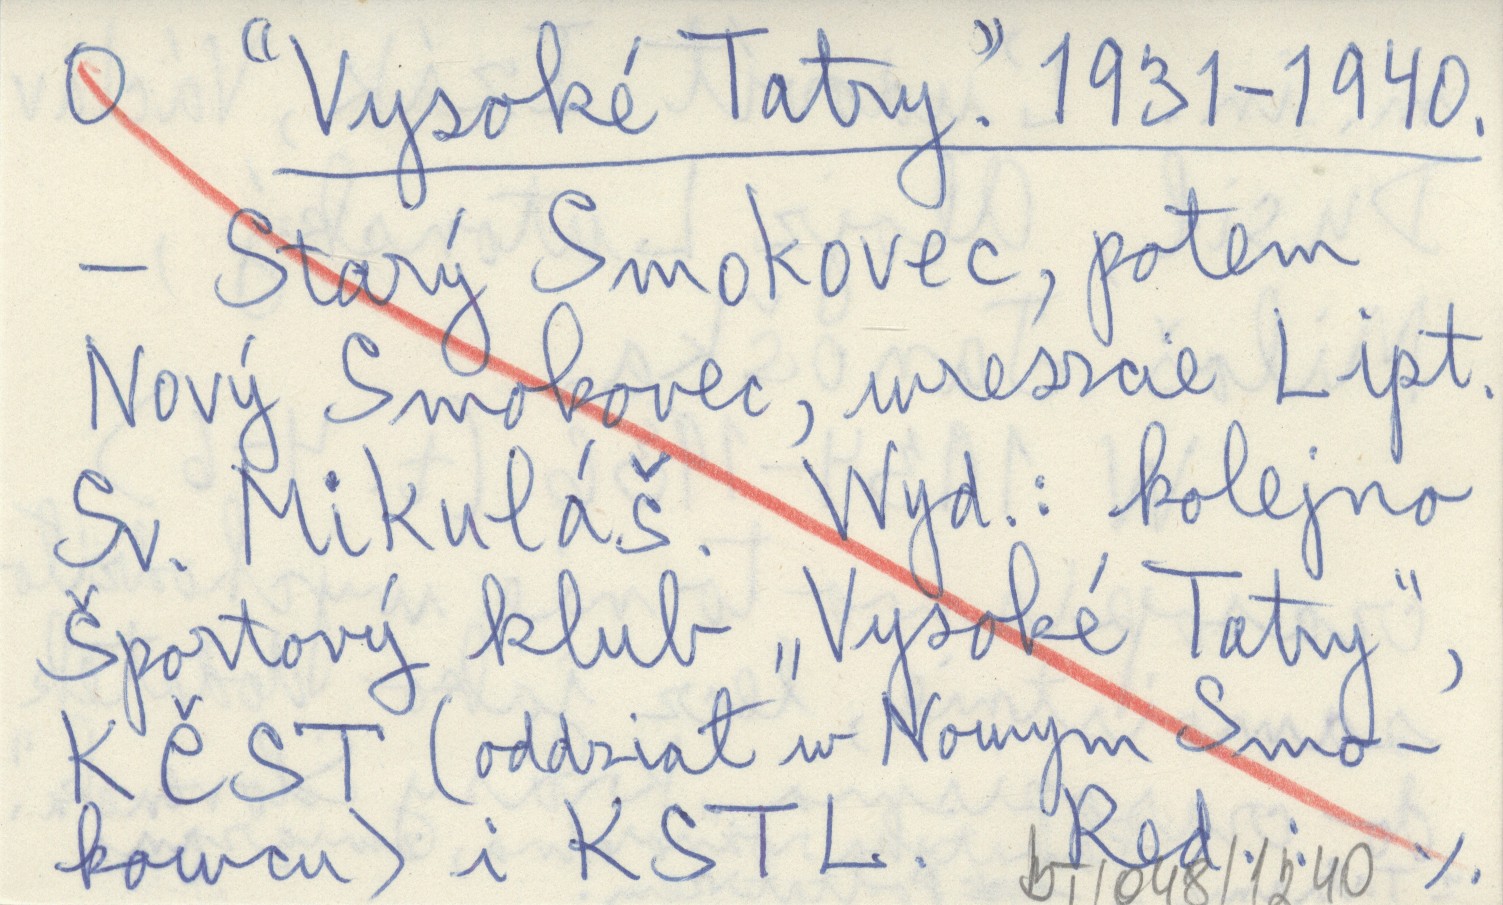 O "Vysoké Tatry." 1931-1940.
– Starý Smokovec, potem
Nový Smokovec, wreszcie Lipt.
Sv. Mikuláš. Wyd.: kolejno
Športový klub „Vysoké Tatry",
KČST (oddział w Nowym Smo-
kowcu) i KSTL. Red.: ./.
/048/1240